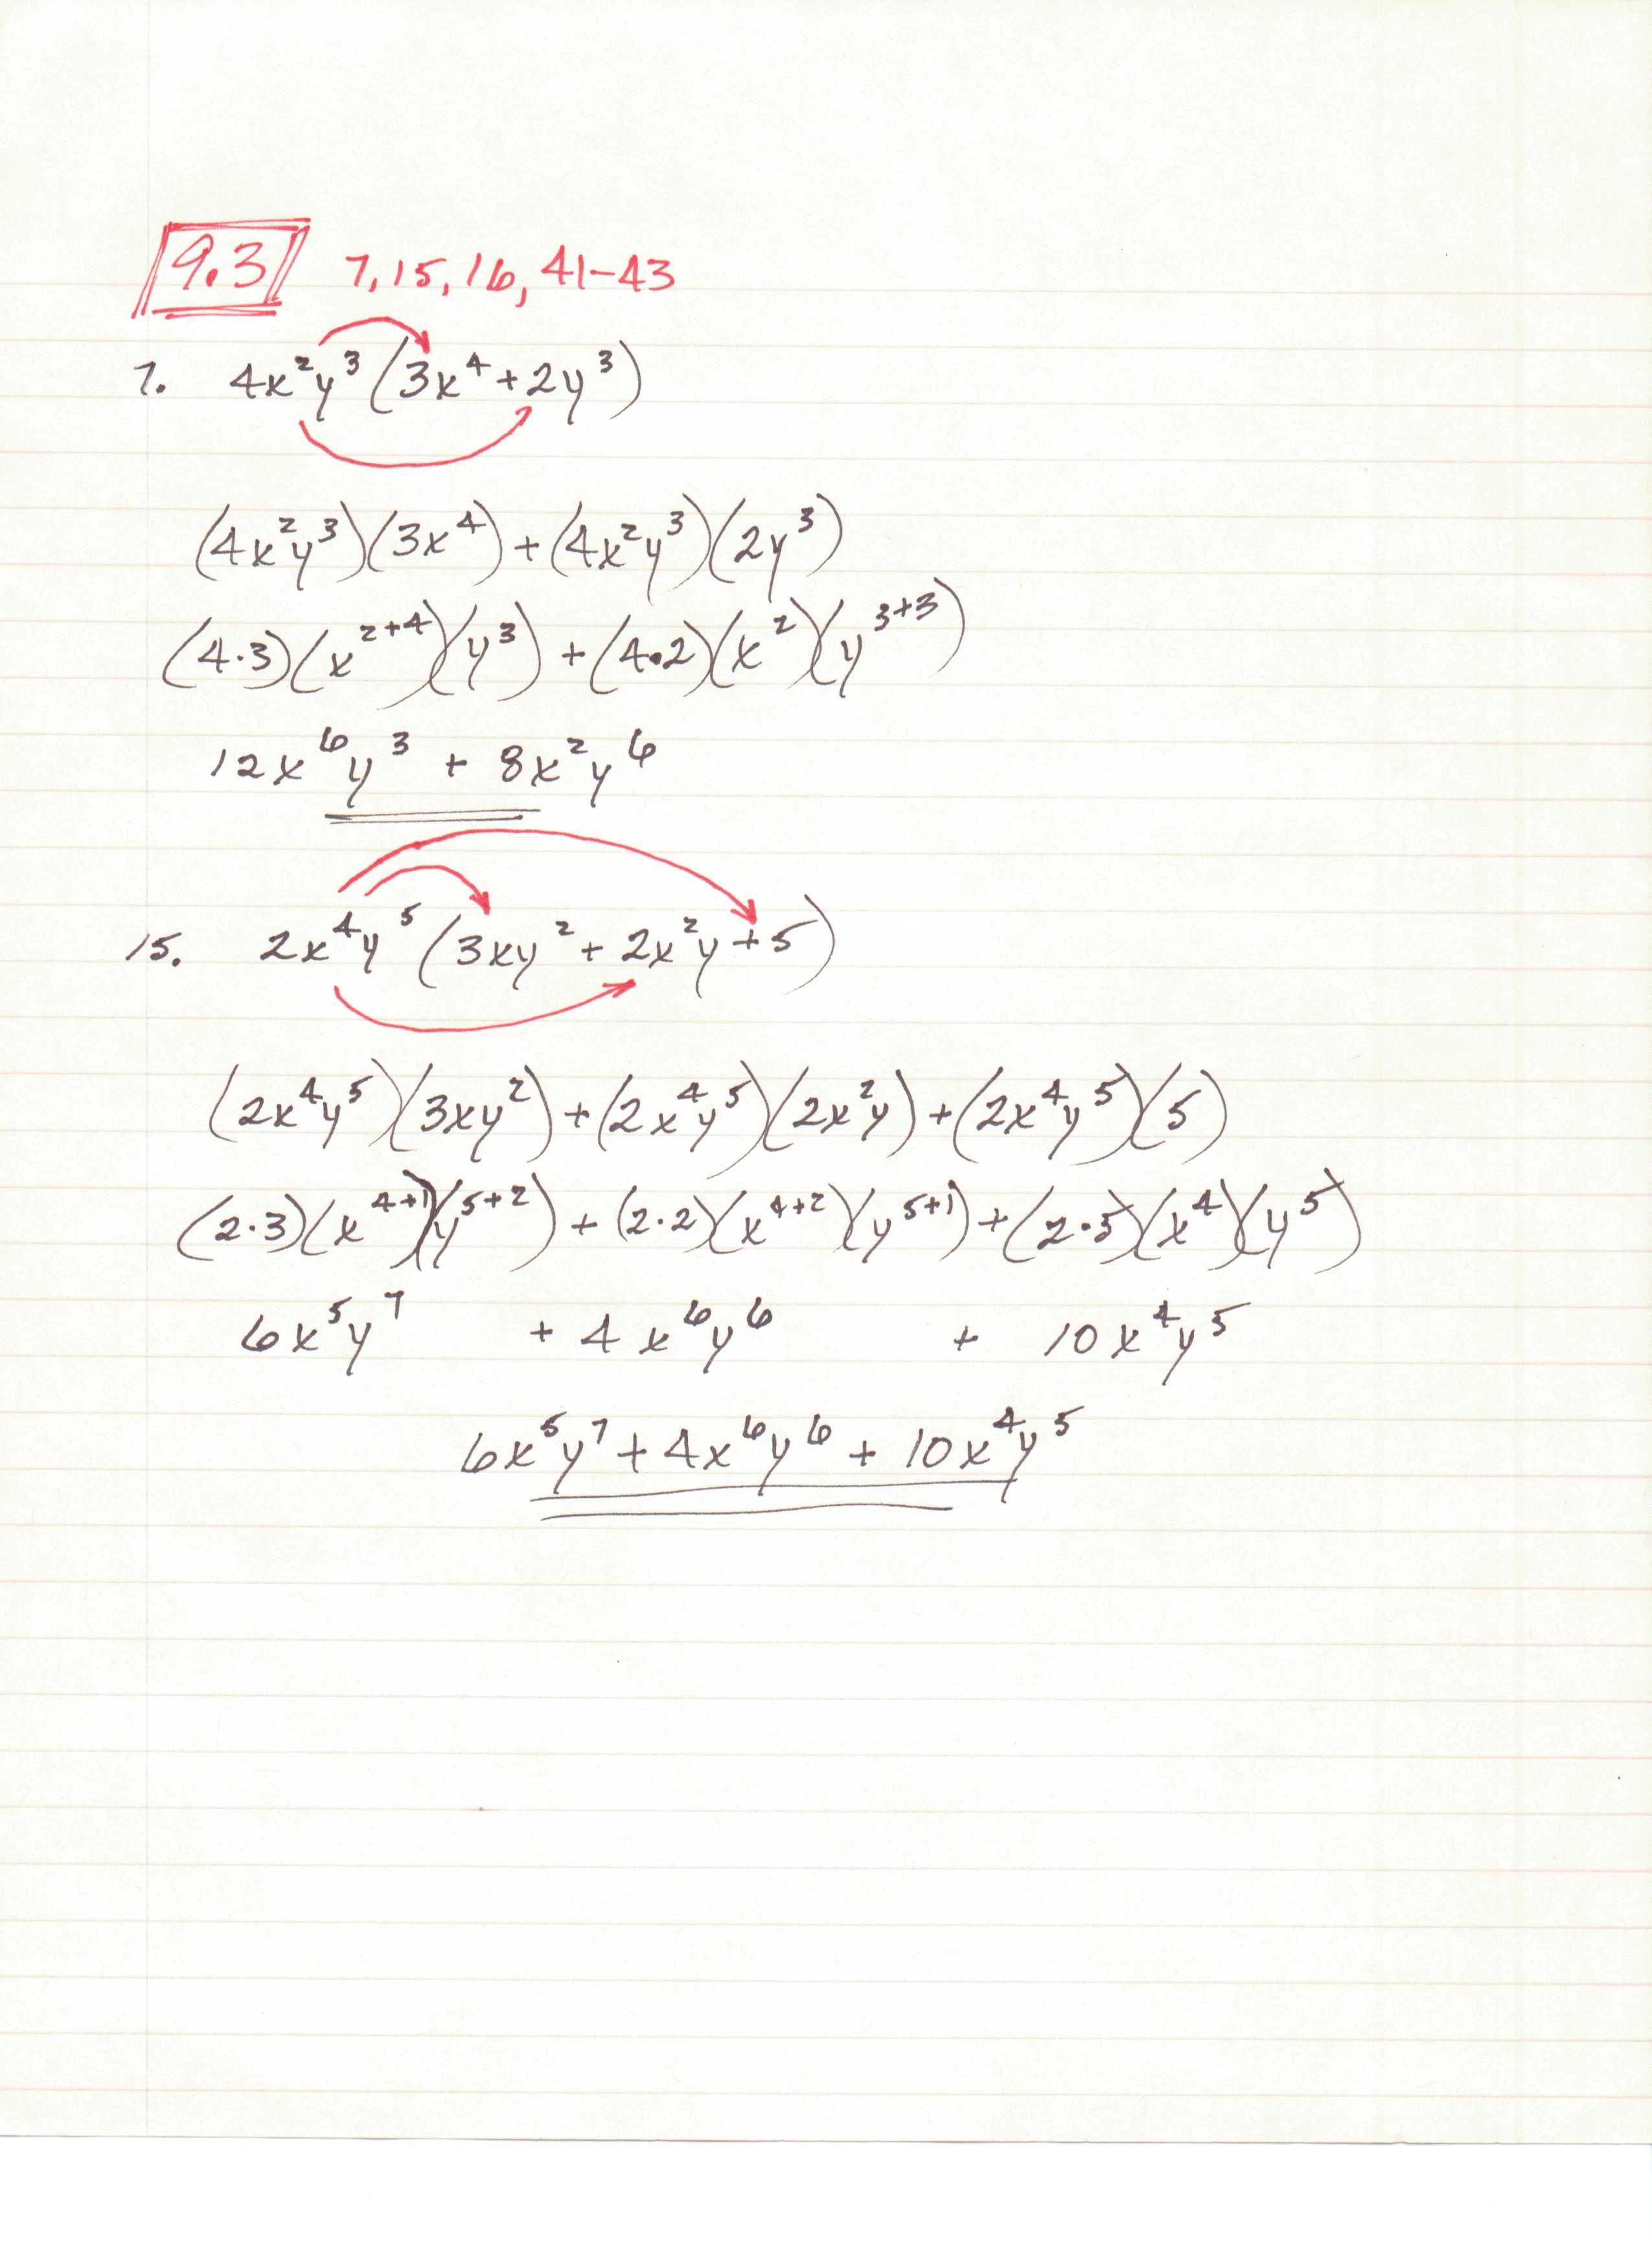 9.3 7, 15, 16, 41-43
7. 4x²y³(3x⁴+2y³)
(4x²y³)(3x⁴)+(4x²y³)(2y³)
(4·3)(x²⁺⁴)(y³)+(4·2)(x²)(y³⁺³)
12x⁶y³ + 8x²y⁶
15. 2x⁴y⁵(3xy²+2x²y+5)
(2x⁴y⁵)(3xy²)+(2x⁴y⁵)(2x²y)+(2x⁴y⁵)(5)
(2·3)(x⁴⁺¹)(y⁵⁺²)+(2·2)(x⁴⁺²)(y⁵⁺¹)+(2·5)(x⁴)(y⁵)
6x⁵y⁷ + 4x⁶y⁶ + 10x⁴y⁵
6x⁵y⁷+4x⁶y⁶+10x⁴y⁵